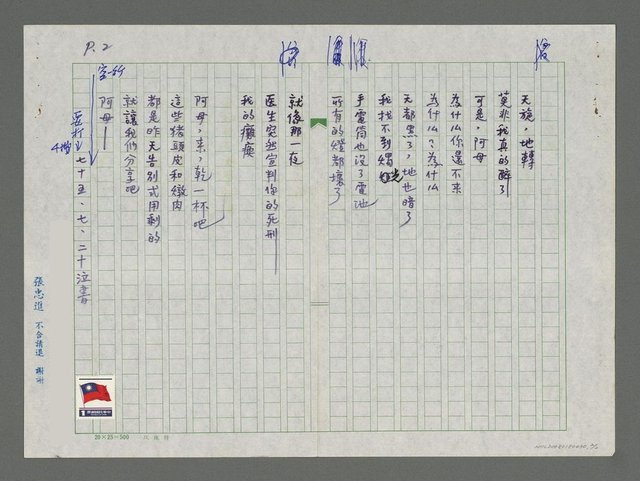 P.2
天旋，地轉
莫非我真的醉了
可是，阿母
為什么你還不來
為什么？為什么
天都黑了，地也暗了
我找不到燭光
手電筒也沒了電池
所有的燈都壞了
就像那一夜
医生突然宣判你的死刑
我的癱瘓
阿母，來，乾一杯吧
這些豬頭皮和燉肉
都是昨天告別式用剩的
就讓我們分享吧
阿母—
空一行
七十五、七、二十泣書
張忠進 不合請退 謝謝
20×25=500